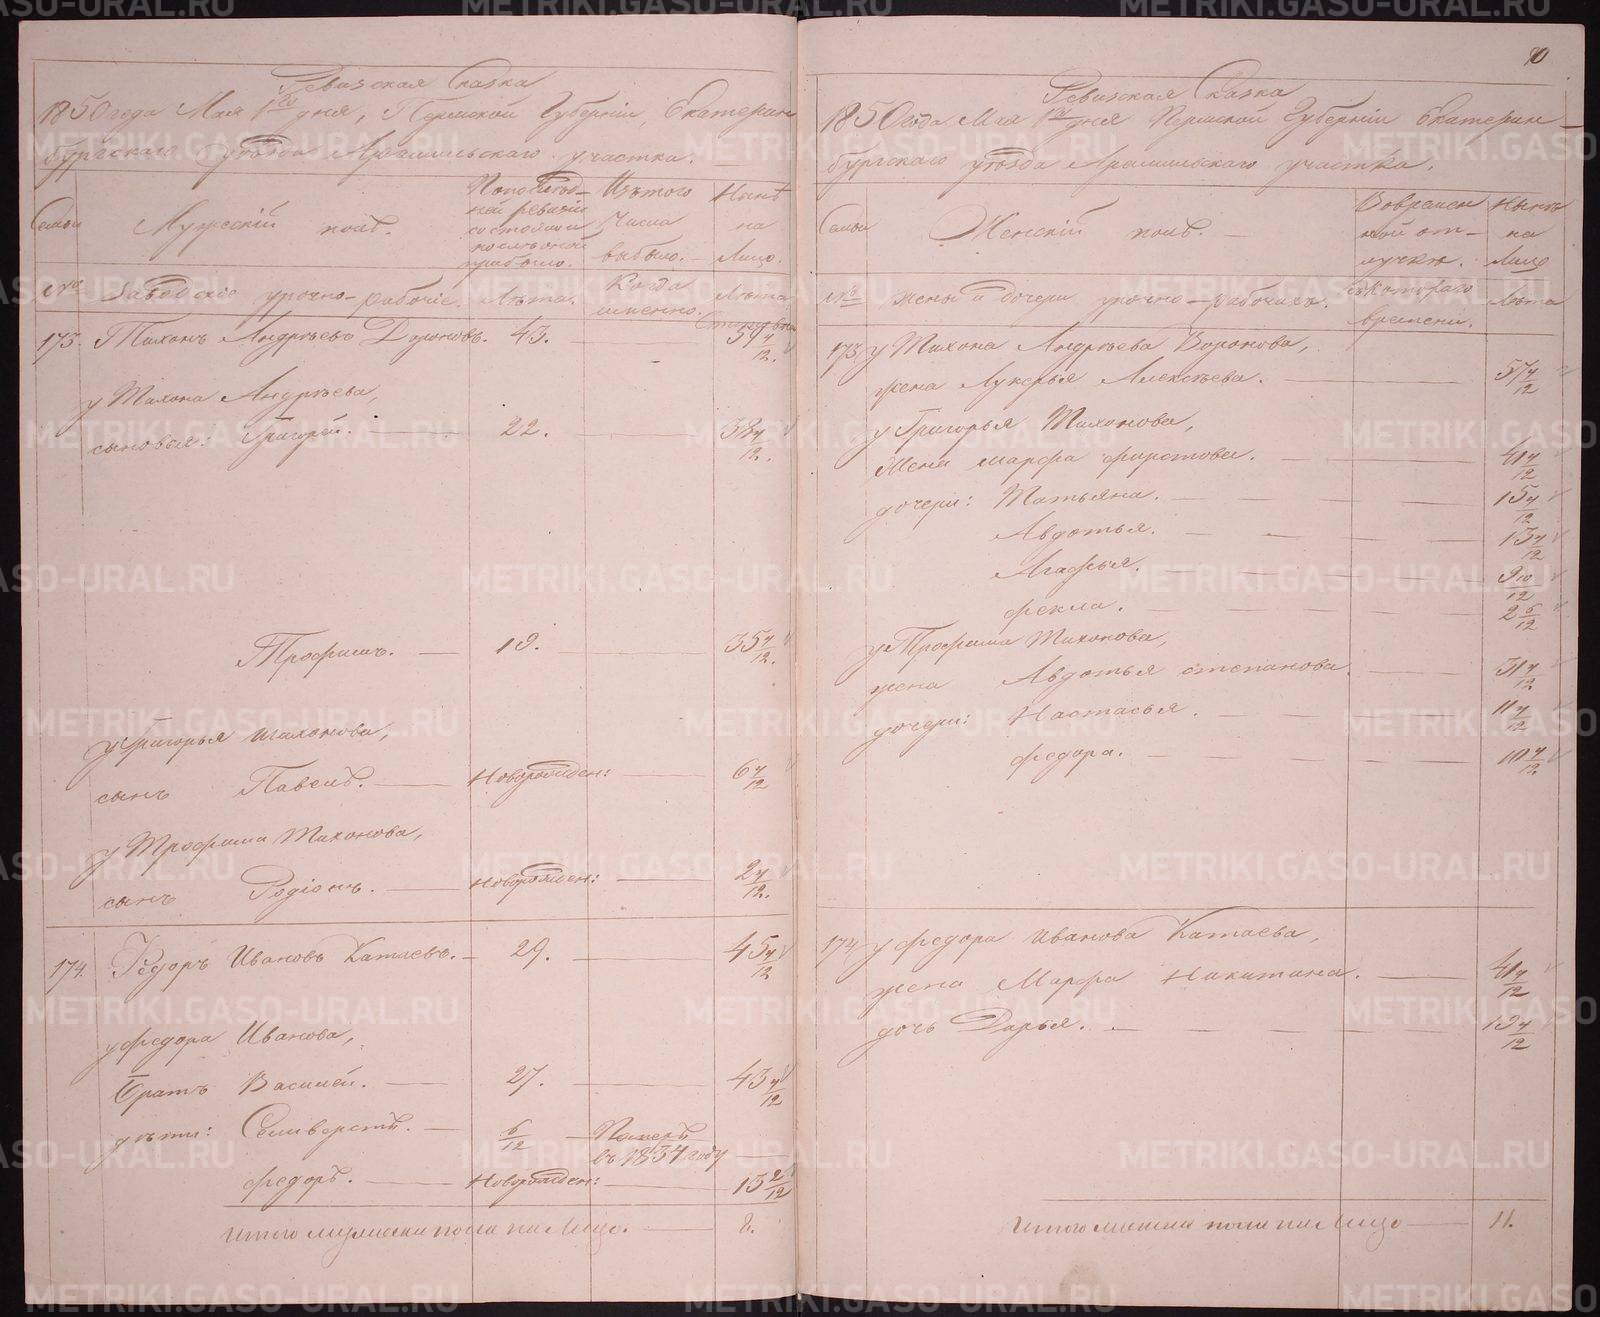 Ревизская Сказка
1850 года Мая 1го дня, Пермской Губерніи, Екатерин
бургскаго уѣзда Арамильскаго участка.
Семьи
Мужескій полъ.
По послѣд-
ней ревизіи
состояло и
послѣ оной
прибыло.
Изъ того
числа
выбыло.
Нынѣ
на
Лицо.
№
Заводскіе урочно-рабочіе.
Лѣта.
Когда
именно.
Лѣта
173. Тихонъ Андрѣевъ Вороновъ. 43. 59 4/12.
у Тихона Андрѣева,
сыновья: Григорей. 22. 38 4/12.
Трофимъ. 19. 35 4/12.
у Григорья Тихонова,
сынъ Павелъ. Новорожден: 6 4/12
у Трофима Тихонова,
сынъ Родіонъ. Новорожден: 2 4/12.
174. Федоръ Ивановъ Катаевъ. 29. 45 4/12
у Федора Иванова,
братъ Василей. 27. 43 4/12
дѣти: Селиверстъ. 6/12 Померъ
въ 1834 году
Федоръ. Новорожден: 13 2/12
Итого мужеска пола на Лицо. 8.
80
Ревизская Сказка
1850 года Мая 1го дня Пермской Губерніи Екатерин
бургскаго уѣзда Арамильскаго участка.
Семьи
Женскій полъ.
Во времен
ной от-
лучкѣ.
Нынѣ
на
Лицо
№
жены и дочери урочно-рабочихъ.
съ котораго
времени.
Лѣта
173 у Тихона Андрѣева Воронова,
жена Лукерья Алексѣева. 57 4/12
у Григорья Тихонова,
Жена Марфа Фирстова. 41 4/12
дочери: Татьяна. 15 4/12
Авдотья. 13 4/12
Агафья. 9 10/12
Фекла. 2 6/12
у Трофима Тихонова,
жена Авдотья Степанова. 31 4/12
дочери: Настасья. 11 4/12
Федора. 10 4/12.
174 у Федора Иванова Катаева,
жена Марфа Никитина. 41 4/12
дочь Дарья. 19 4/12
Итого женска пола на Лицо 11.
METRIKI.GASO-URAL.RU